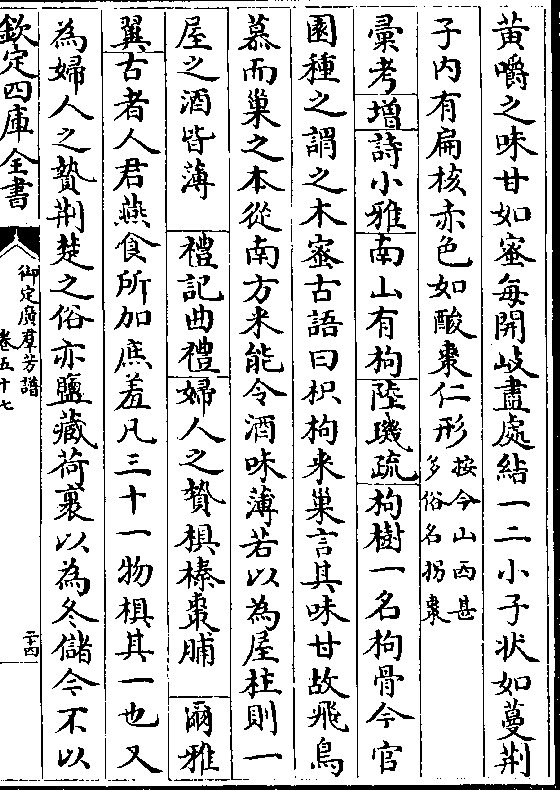 黄嚼之味甘如蜜每開岐盡處結一二小子狀如蔓荆
子内有扁核赤色如酸棗仁形按今山西甚多俗名拐棗
彚考增詩小雅南山有枸陸璣疏枸樹一名枸骨今官
園種之謂之木蜜古語曰枳枸来巢言其味甘故飛鳥
慕而巢之本從南方来能令酒味薄若以為屋柱則一
屋之酒皆薄 禮記曲禮婦人之贄椇榛棗脯 爾雅
翼古者人君燕食所加庶羞凡三十一物椇其一也又
為婦人之贄荆楚之俗亦鹽藏荷裹以為冬儲今不以
欽定四庫全書
御定廣羣芳譜
卷五十七
二十四